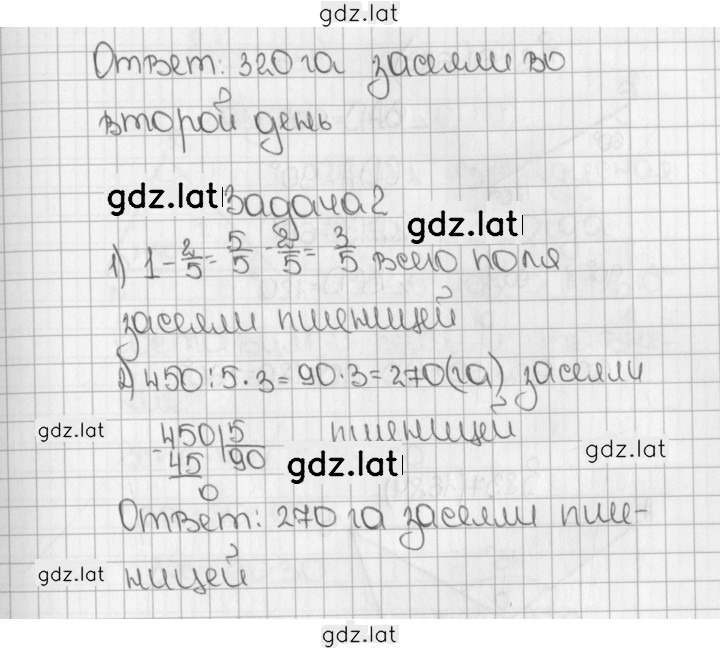 gdz.lat
Ответ: 320 га засеяли во
второй день
gdz.lat Задача 2 gdz.lat
1) 1 - 2/5 = 5/5 - 2/5 = 3/5 всего поля
засеяли пшеницей
2) 450 : 5 · 3 = 90 · 3 = 270 (га) засеяли
gdz.lat 450 | 5 пшеницей gdz.lat
- 45 | 90 gdz.lat
0
Ответ: 270 га засеяли пше-
gdz.lat ницей
gdz.lat